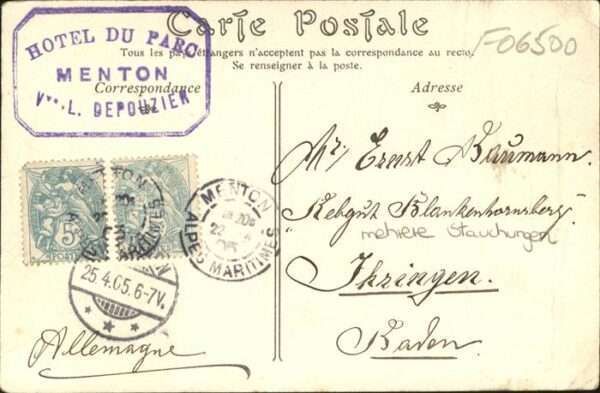 Carte Postale
Tous les pays étrangers n'acceptent pas la correspondance au recto.
Se renseigner à la poste.
Correspondance
Adresse
HOTEL DU PARC
MENTON
Vve L. DEPOUZIER
F06500
Mr. Ernst Baumann.
"Rebgut Blankenhornsberg"
mehrere Stauchungen
Ihringen.
Baden.
Allemagne
5
MENTON
22
05
ALPES MARITIMES
MENTON
MARITIMES
25.4.05.6-7V.